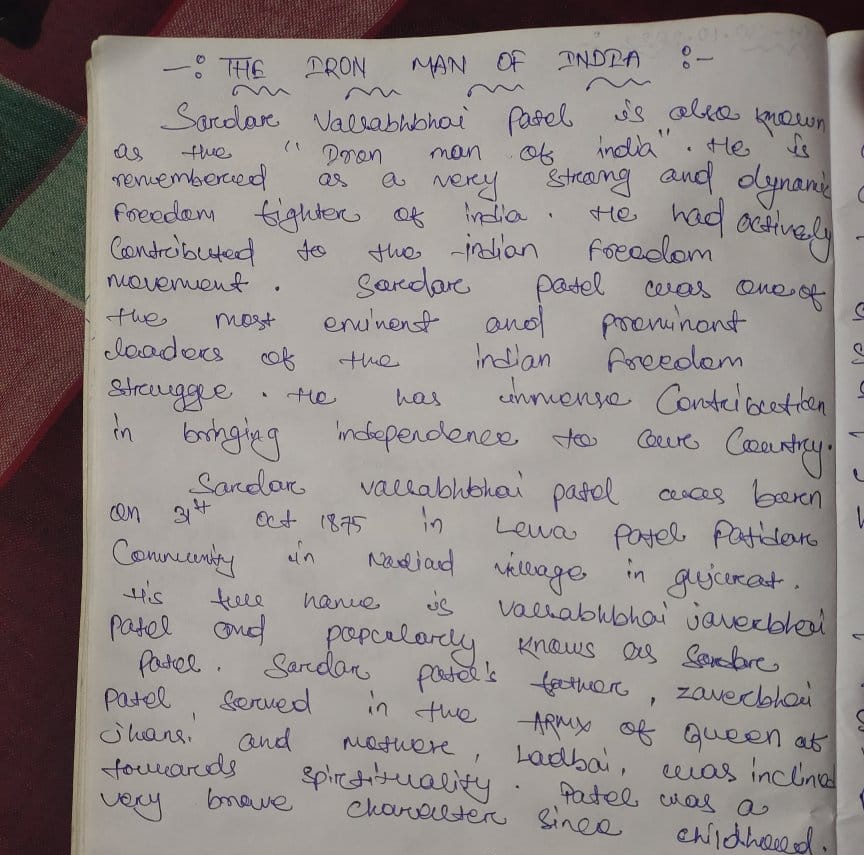 -: THE IRON MAN OF INDIA :-
Sardar Vallabhbhai Patel is also known
as the "Iron man of india". He is
remembered as a very strong and dynamic
freedom fighter of india. He had actively
Contributed to the indian freedom
movement. Sardar patel was one of
the most eminent and prominont
leaders of the indian freedom
struggle. He has immense Contribution
in bringing independence to our Country.
Sardar vallabhbhai patel was born
on 31st Oct 1875 in Lewa Patel Patidar
Community in Nadiad village in gujurat.
His full name is vallabhbhai javerbhai
Patel and popularly knows as Sardar
Patel. Sardar patel's father, zaverbhai
Patel served in the ARMY of Queen of
jhansi and mother, Ladbai, was inclined
towards spirtituality. Patel was a
very brave character since childhood.